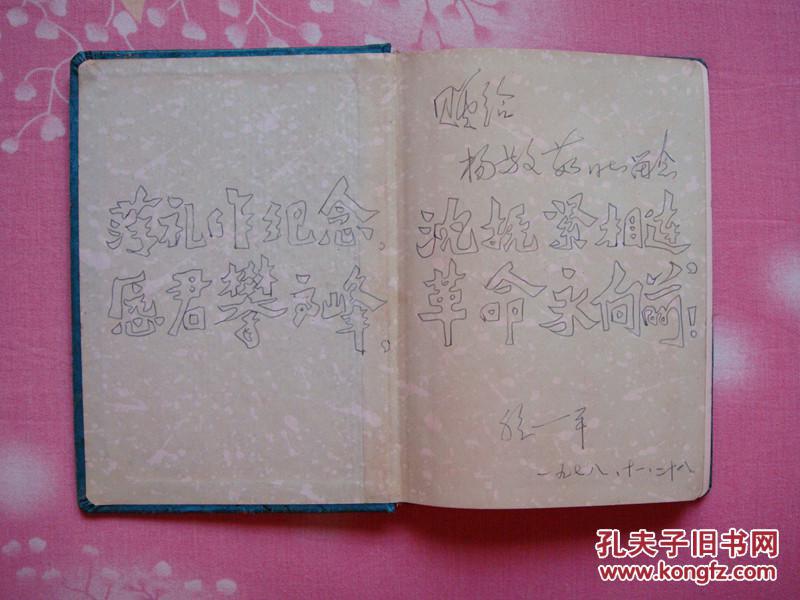 薄礼作纪念，
愿君攀高峰，
赠给
杨敬 留念
沈抚紧相连，
革命永向前！
一平
一九七八、十一、二十八
孔夫子旧书网
www.kongfz.com